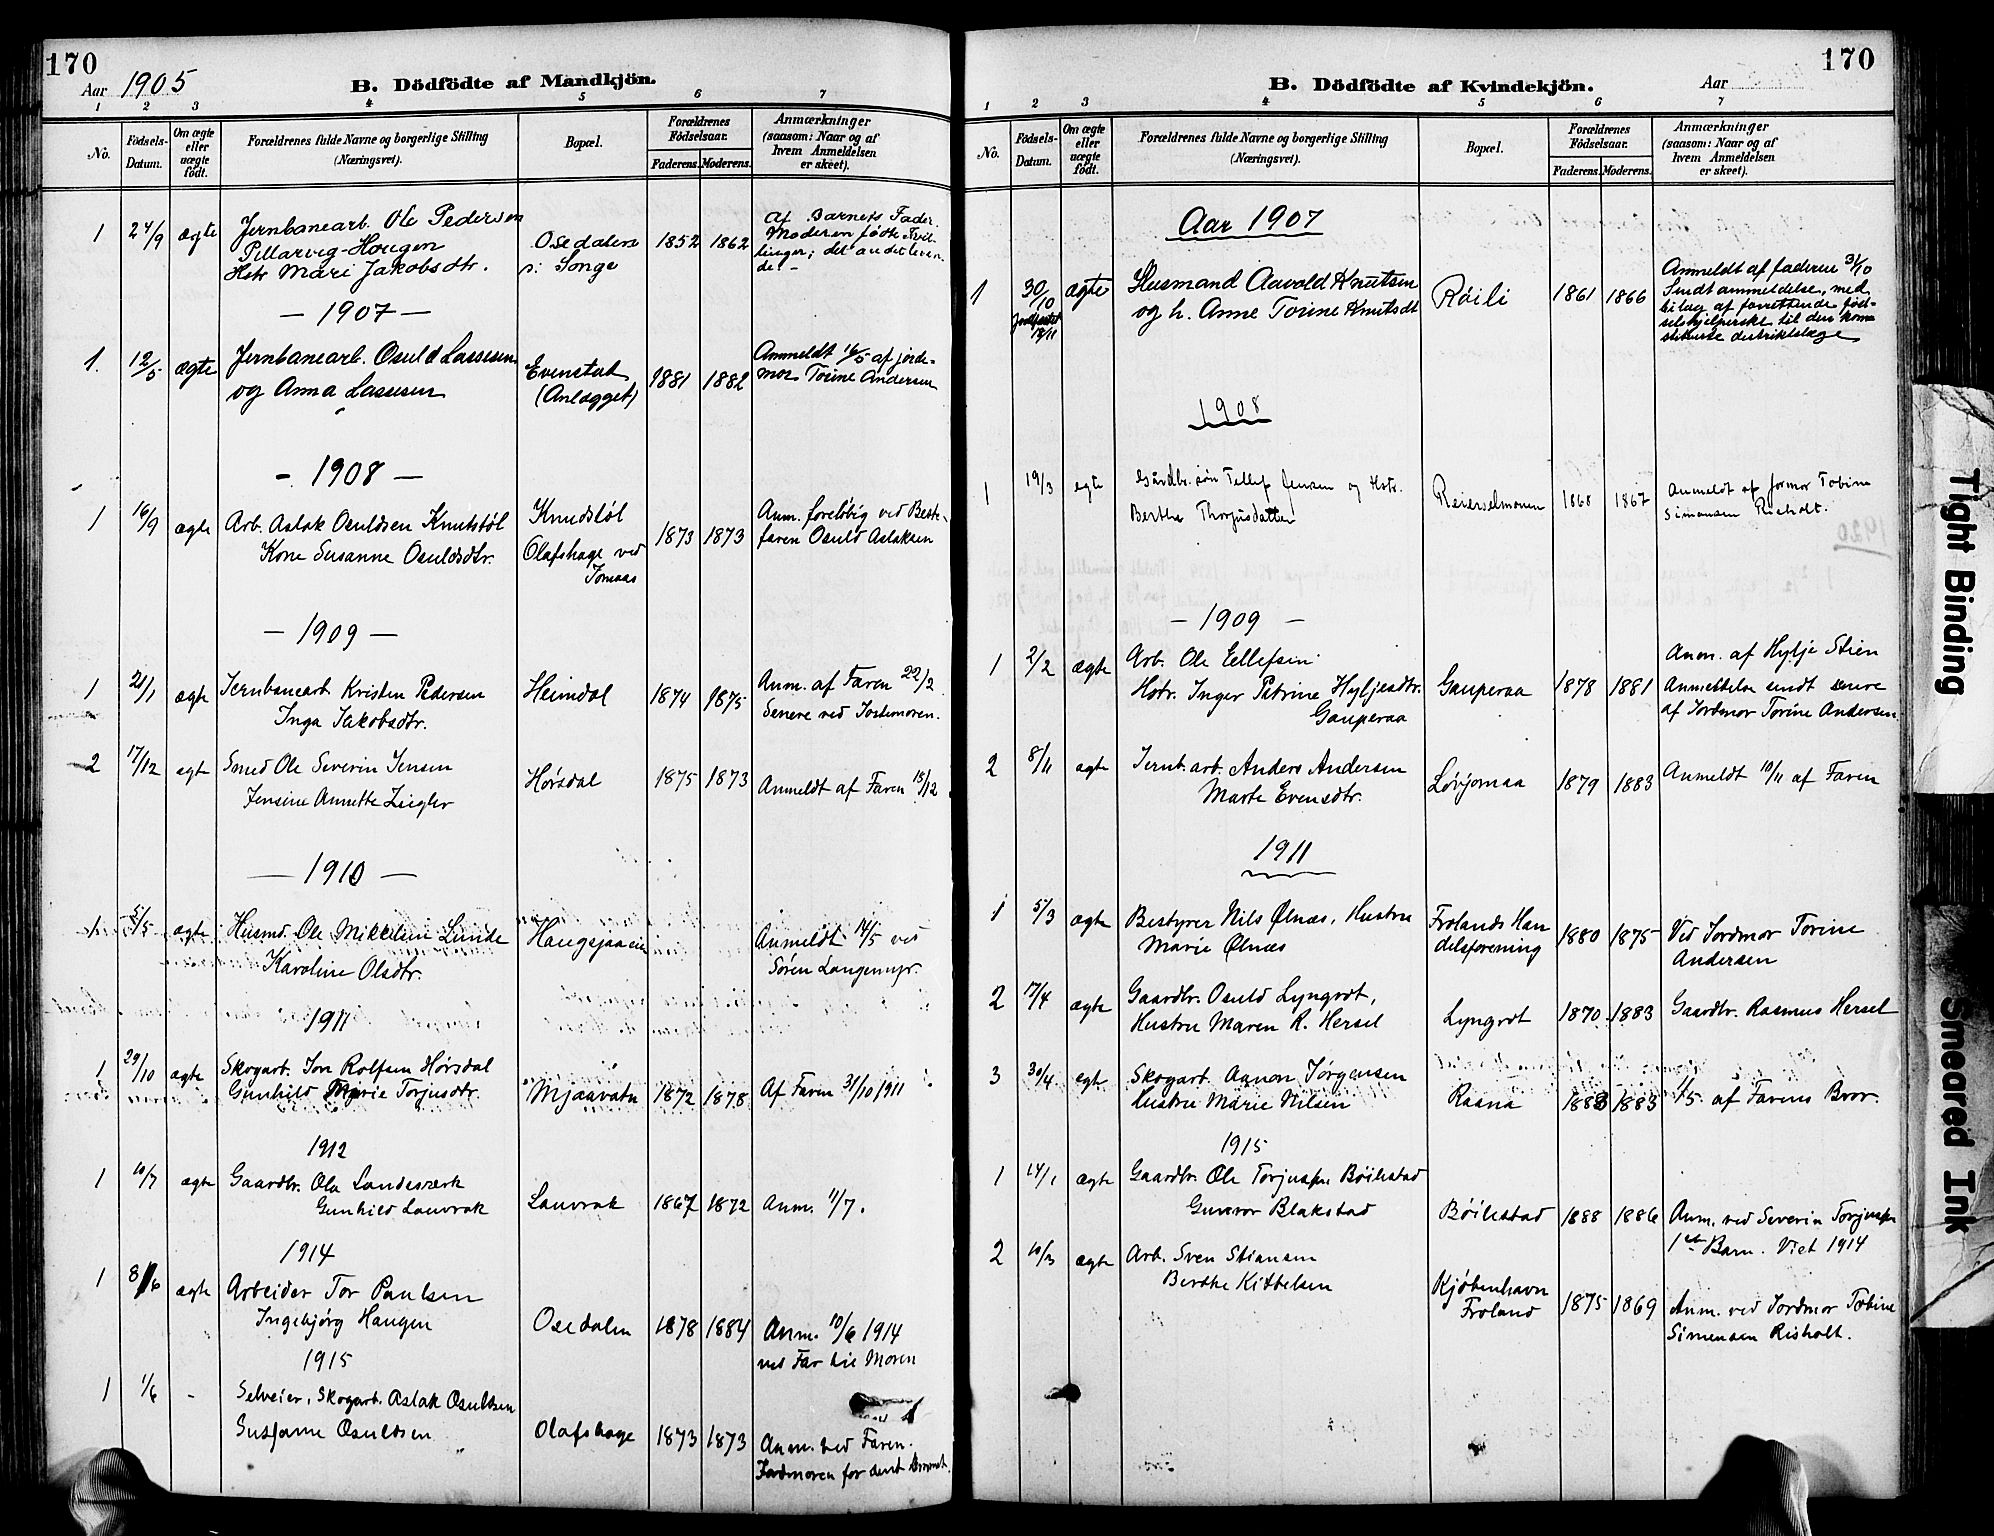 170
Aar 1905
B. Dödfödte af Mandkjön.
1 2 3 4 5 6 7
No.
Födsels-Datum.
Om ægte eller uægte født.
Forældrenes fulde Navne og borgerlige Stilling
(Næringsvei).
Bopæl.
Forældrenes Födselsaar.
Faderens. Moderens.
Anmærkninger
(saasom: Naar og af
hvem Anmeldelsen
er skeet).
1 24/9 ægte Jernbanearb. Ole Pedersen
Hougen
Hstr Mari Jakobsdtr.
Osedalen
p: Songe
1852 1862
af Barnets Fader.
Moderen fødte Tvil-
linger; det andet leven-
de. -
- 1907 -
1. 12/5 ægte Jernbanearb. Osuld Lassesen
og Anna Lassesen
Evenstad
(Anlægget)
1881 1882
Anmeldt 16/5 af jorde-
mor Torine Andersen
- 1908 -
1 16/9 ægte Arb. Aslak Osuldsen Knutstøl
Kone Susanne Osuldsdtr.
Knudstøl
Olafshage ved
Jomaas
1873 1873
Anm. foreløbig ved Beste-
faren Osuld Aslaksen
- 1909 -
1 21/1 ægte Jernbanearb Kristen Pedersen
Inga Jakobsdtr.
Heimdal
1874 1875
Anm. af Faren 22/2
Senere ved Jordemoren.
2 17/12 egt Smed Ole Severin Jensen
Jensine Annette Ziegler
Hørsdal
1875 1873
Anmeldt af Faren 18/12
- 1910 -
1 5/5 ægte Husmd. Ole Mikkelsen Lunde
Karoline Olsdtr.
Haugsjaaen
Anmeldt 14/5 ved
Søren Langemyr.
1911
1 29/10 ægte Skogarb. Jon Rolfsen Hørsdal
Gunhild Marie Torjusdtr.
Mjaavatn
1872 1878
Af Faren 31/10 1911
1912
1 10/7 ægte Gaardbr. Ole Landsverk
Gunhild Lauvrak
Lauvrak
1867 1872
Anm. 11/7.
1914
1 8/6 ægte Arbeider Tor Paulsen
Ingebjørg Haugen
Osedalen
1878 1884
Anm. 10/6 1914
ved Far til Moren
1915
1 1/6 - Selveier, Skogarb. Aslak Osuldsen
Susanne Osuldsen
Olafshage
1873 1873
Anm. ved Faren.
Jordmoren for sent kommet.
170
B. Dödfödte af Kvindekjön.
Aar
1 2 3 4 5 6 7
No.
Födsels-Datum.
Om ægte eller uægte født.
Forældrenes fulde Navne og borgerlige Stilling
(Næringsvei).
Bopæl.
Forældrenes Födselsaar.
Faderens. Moderens.
Anmærkninger
(saasom: Naar og af
hvem Anmeldelsen
er skeet).
Aar 1907
1 30/10 ægte Husmand Aavold Knutsen
og h. Anne Torine Knutsdt
Røili
1861 1866
Anmeldt af faderen 31/10
Sendt anmeldelse, med
bilag af forrettende fød-
selshjelperske til den kon-
stituerte distriktslæge
1908
1 19/3 egte Gårdbr.søn Tellef Jensen og Hstr.
Berthe Thorjusdatter
Reierselmoen
1868 1867
Anmeldt af jormor Tobine
Simonsen Risholt.
- 1909 -
1 2/2 ægte Arb. Ole Ellefsen
Hstr. Inger Petrine Hyljesdtr.
Gauperaa
Gauperaa
1878 1881
Anm. af Hylje Stien
Anmeldelse sendt senere
af Jordmor Torine Andersen
2 8/11 ægte Jernb.arb. Anders Andersen
Marte Evensdtr.
Løvjomaa
1879 1883
Anmeldt 10/11 af Faren
1911
1 5/3 ægte Bestyrer Nils Ølnæs, Hustru
Marie Ølnæs
Frolands Han
delsforening
1880 1875
Ved Jordmor Torine
Andersen
2 17/4 ægte Gaardbr. Osuld Lyngrot,
Hustru Maren R. Hersel
Lyngrot
1870 1883
Gaardbr. Rasmus Hersel
3 30/4 egt. Skogarb. Aanon Jørgensen
Hustru Marie Nilsen
Raana
1883 1883
1/5 af Farens Bror.
1915
1 14/1 ægte Gaardbr. Ole Torjussen Bøilestad
Gunvor Blakstad
Bøilestad
1888 1886
Anm. ved Severin Torjussen
1ste Barn. Viet 1914
2 10/3 ægte Arb. Sven Stiansen
Berthe Kittelsen
Kjøbenhavn
Froland
1875 1869
Anm. ved Jordmor Tobine
Simonsen Risholt.
Tight Binding
Smeared Ink